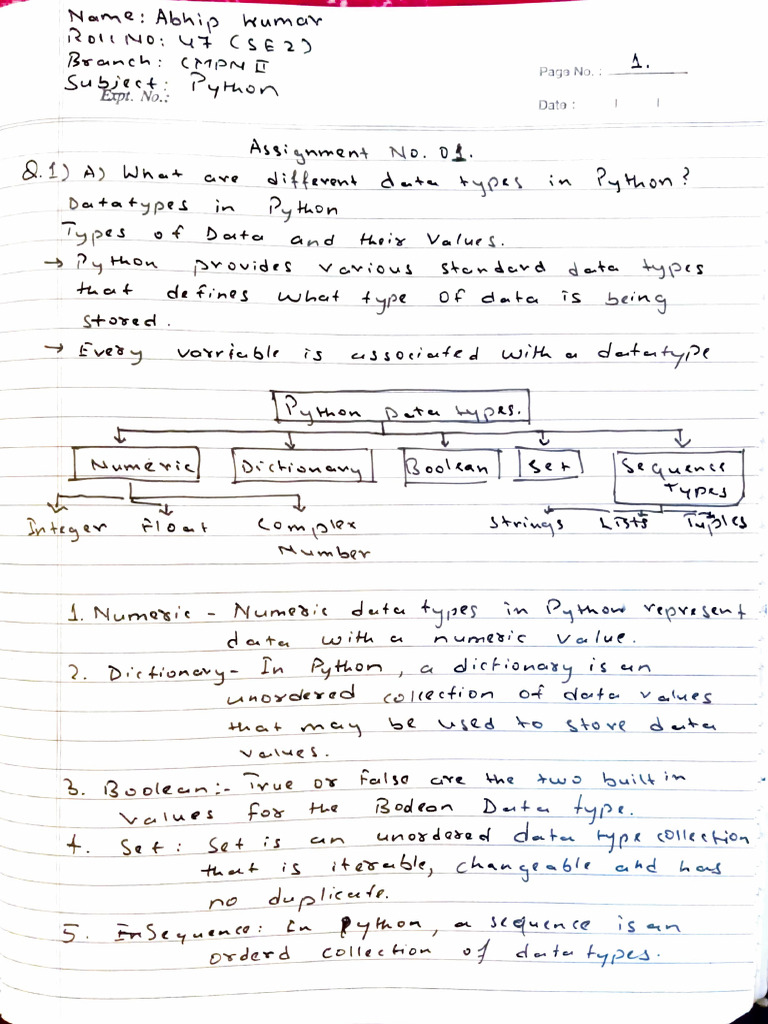 Name: Abhip Kumar
Roll No: 47 (SE2)
Branch: CMPN II
Subject: Python
Expt. No.:
Page No.: 1.
Date: | |
Assignment No. 01.
Q.1) A) What are different data types in Python?
Datatypes in Python
Types of Data and their Values.
→ Python provides various standard data types
that defines what type of data is being
stored.
→ Every varriable is associated with a datatype
Python Data types.
Numeric Dictionary Boolean Set Sequence
Types
Integer Float Complex Strings Lists Tuples
Number
1. Numeric - Numeric data types in Python represent
data with a numeric value.
2. Dictionary - In Python, a dictionary is an
unordered collection of data values
that may be used to store data
values.
3. Boolean:- True or False are the two built in
values for the Bodeon Data type.
4. Set: Set is an unordered data type collection
that is iterable, changeable and has
no duplicate.
5. Sequence: In Python, a sequence is an
orderd collection of data types.